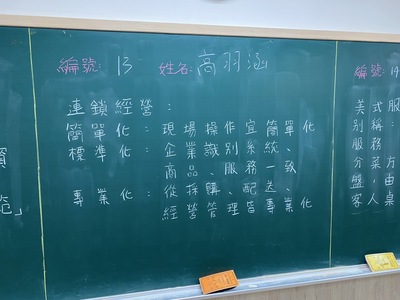 編號：13 姓名：高羽涵
連鎖經營：
簡單化：現場操作宜簡單化
標準化：企業識別系統、
商品、服務一致
專業化：從採購、配送、
經營管理皆專業化
編號：14
美式服
別稱
服務
分菜方
盤，由
客人桌